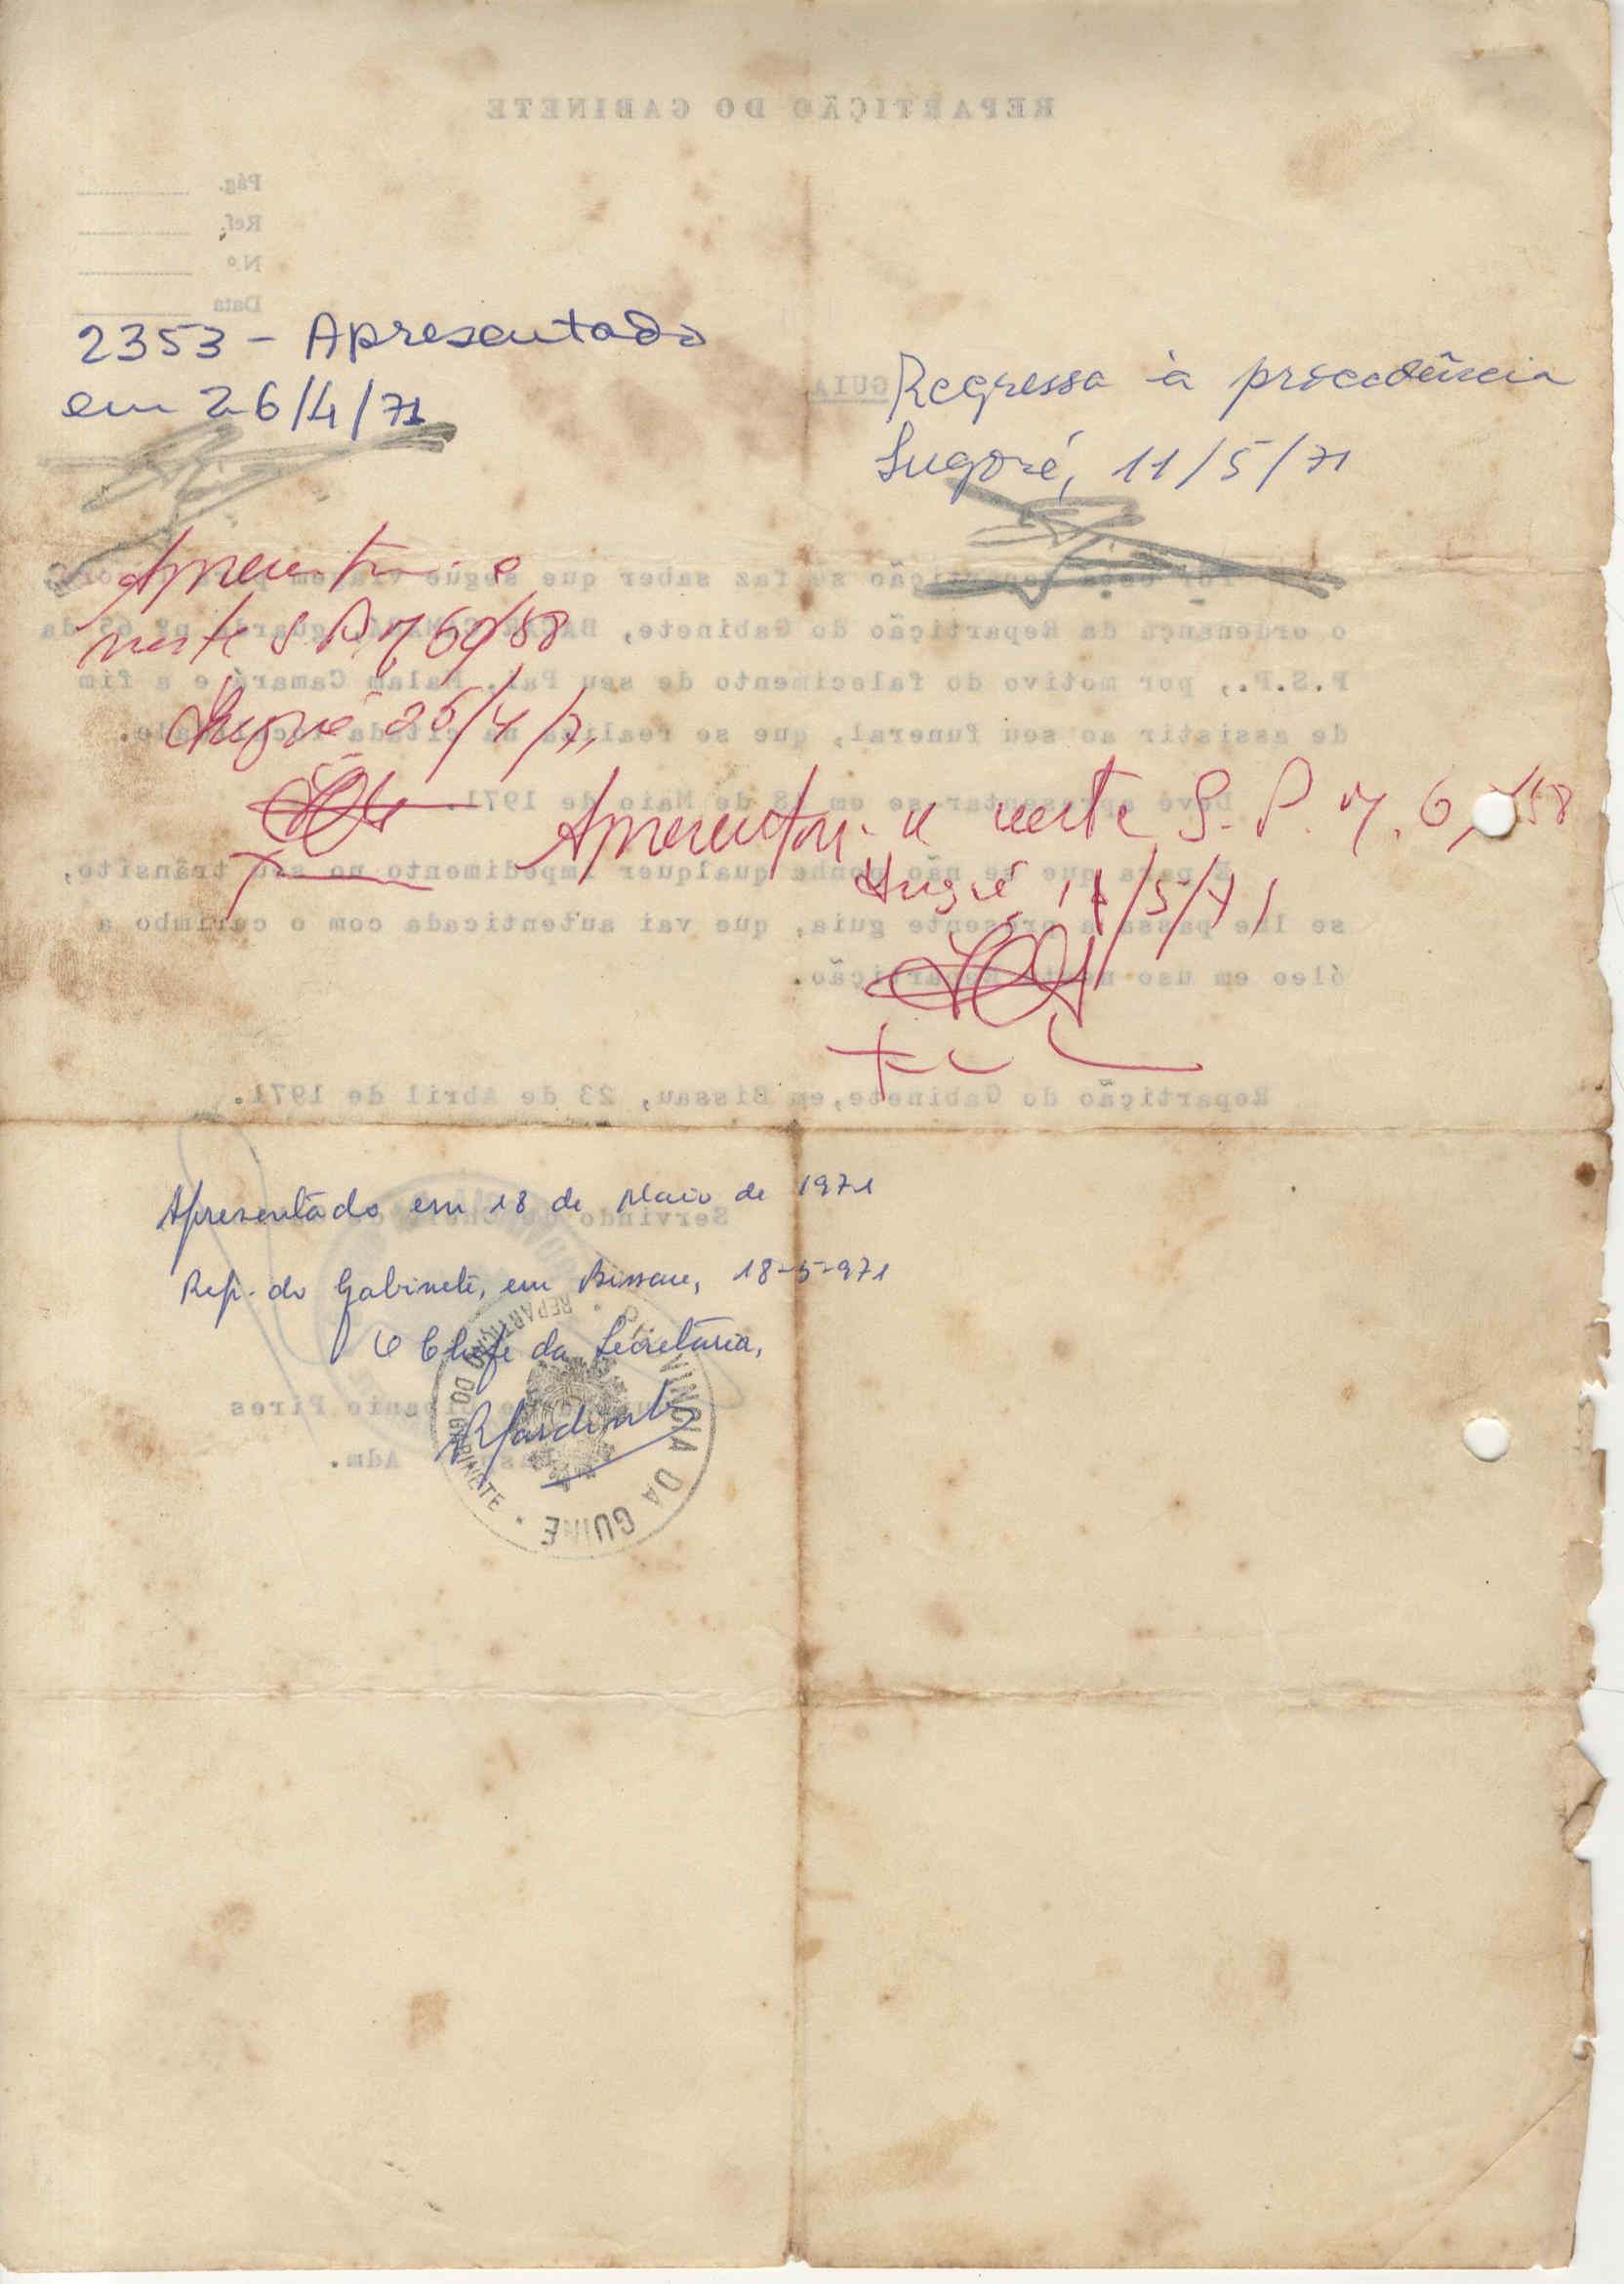 REPARTIÇÃO DO GABINETE
Pág.
Ref.
N.º
Data
2353 - Apresentado
em 26/4/71
GUIA
Regressa à procedência
Ingoré, 11/5/71
Apresentou-se
neste S. P. M. 6058
Ingoré 26/4/71
Apresentou-se neste S. P. M. 6 58
Ingoré 11/5/71
se faz saber que segue viagem
o ordenança da Repartição do Gabinete, guarda nº 65 da
P.S.P., por motivo do falecimento de seu Pai, Malam Camará e a fim
de assistir ao seu funeral, que se realiza na citada
Deve apresentar-se em 18 de Maio de 1971.
E para que se não ponha qualquer impedimento no seu trânsito,
se lhe passa a presente guia, que vai autenticada com o carimbo a
óleo em uso nesta Repartição.
Repartição do Gabinete, em Bissau, 23 de Abril de 1971.
Servindo de Chefe
Apresentado em 18 de Maio de 1971
Rep. do Gabinete, em Bissau, 18-5-971
O Chefe da Secretaria,
Pires
Adm.
PROVINCIA DA GUINÉ
REPARTIÇÃO DO GABINETE